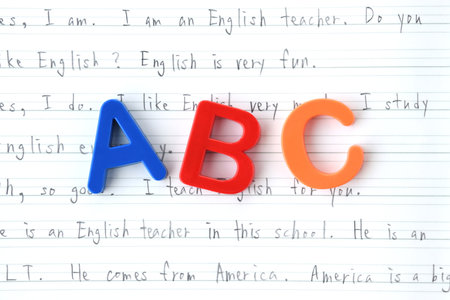 es, I am. I am an English teacher. Do you
ke English ? English is very fun.
es, I do. I like English very I study
nglish
A B C
h, so I teach English for you.
e is an English teacher in this school. He is an
LT. He comes from America. America is a big